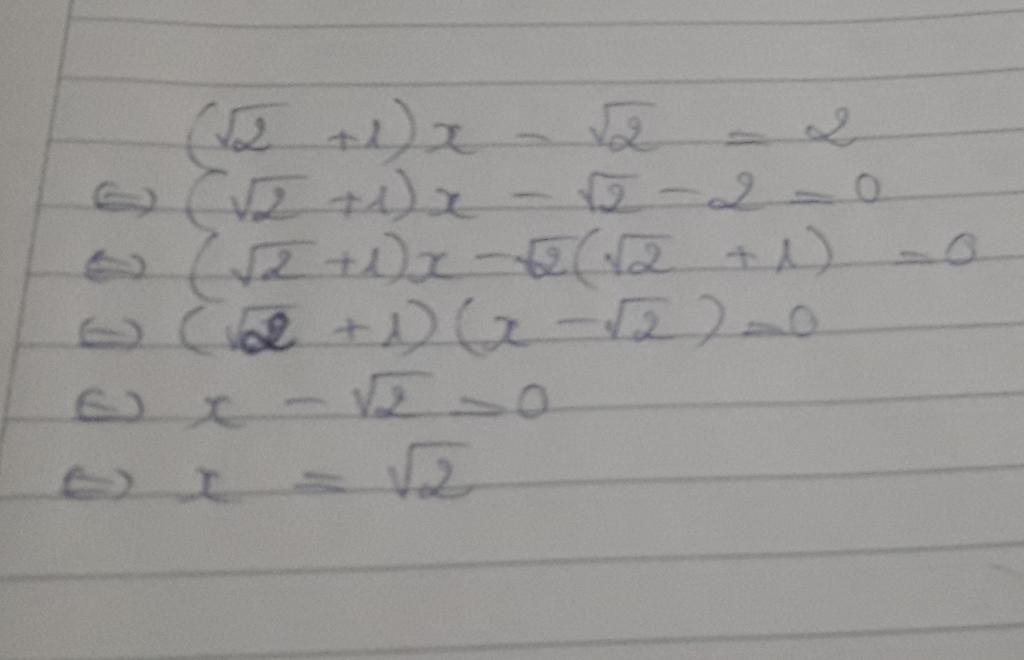 (√2 +1)x - √2 = 2
⇔ (√2 +1)x - √2 - 2 = 0
⇔ (√2 +1)x - √2(√2 +1) = 0
⇔ (√2 +1)(x - √2) = 0
⇔ x - √2 = 0
⇔ x = √2